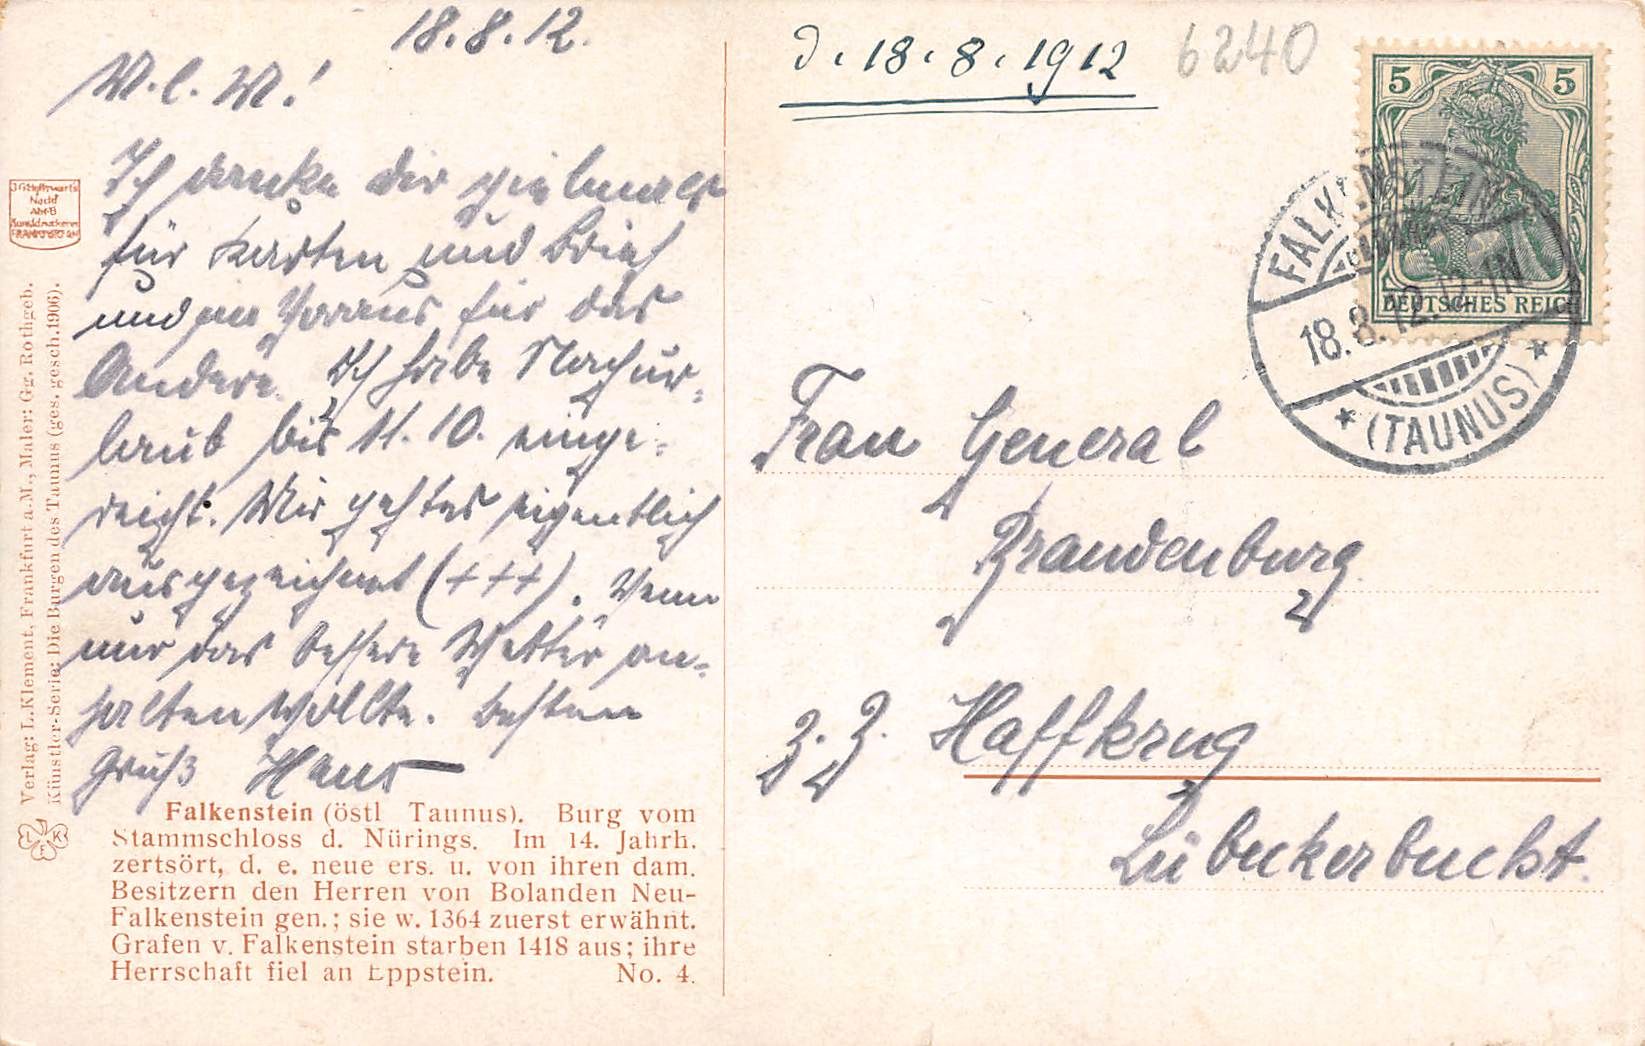 18.8.12.
W. l. M!
Ich danke dir vielmals
für Karten und Brief
und im Voraus für das
Andere. Ich habe Nachur-
laub bis 11.10. einge-
reicht. Mir geht es eigentlich
ausgezeichnet (+++). Wenn
nur das bessere Wetter an-
halten wollte. Besten
Gruß Hans
Falkenstein (östl Taunus). Burg vom
Stammschloss d. Nürings. Im 14. Jahrh.
zertsört, d. e. neue ers. u. von ihren dam.
Besitzern den Herren von Bolanden Neu-
Falkenstein gen.; sie w. 1364 zuerst erwähnt.
Grafen v. Falkenstein starben 1418 aus; ihre
Herrschaft fiel an Eppstein. No. 4.
Verlag: L. Klement, Frankfurt a. M., Maler: Gg. Rothgeb.
Künstler-Serie: Die Burgen des Taunus (ges. gesch. 1906).
L K
F
FRANKFURT
d. 18.8.1912
6240
5 5
DEUTSCHES REICH
FALKENSTEIN
18.8.12.12-1N
* (TAUNUS) *
Frau General
Brandenburg
z. Z. Haffkrug
Lübeckerbucht.